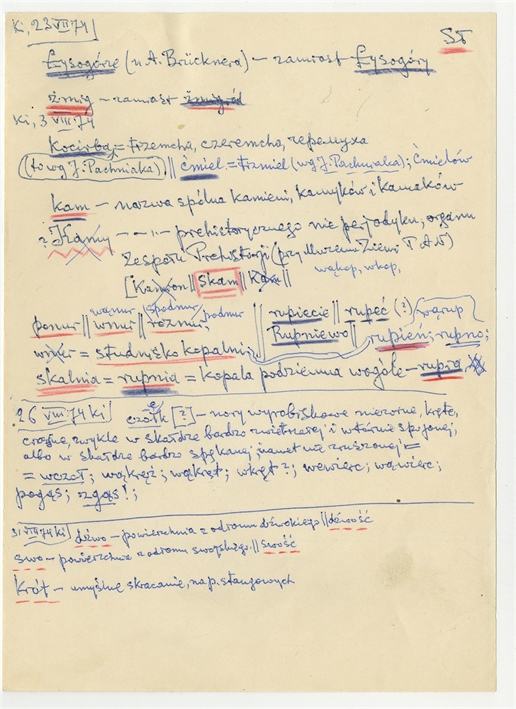 Ki, 23 VII 74
ST
Łysogórze (u A. Brücknera) – zamiast Łysogóry
żmig – zamiast żmigród
Ki, 3 VIII 74
Kocirba = trzemcha, czeremcha, черемуха
(to wg J. Pachniaka) || ćmiel = trzmiel (wg J. Pachniaka); Ćmielów
kam – nazwa spólna kamieni, kamyków i kamaków
? Kamy – – " – prehistorycznego nie perjodyku, organu
Zespołu Prehistorji (przy Muzeum Ziemi PAN)
[Kamion || skam || Kam ||
wąkop, wkop,
wamur spodmur podmur
ponur || wnur || roznur || rupiecie || rupeć (?) warup
Rupniewo rupień; rupno;
= studnisko kopalni
skalnia = rupnia = kopala podziemna wogóle – rupia
26 VIII 74 Ki czołk [?] – nory wyrobiskowe niezorne, kręte,
ciasne, zwykle w skałdze bardzo zwietrzałej i wtórnie spojonej,
albo w skałdze bardzo spękanej, nawet nie zruszonej =
= wczoł; wąkręż; wąkręt; wkręt?; wewierc; wąwierc;
pogąs; zgąs!;
31 VIII 74 Ki déwo – powierzchnia z odłomu déwskiego || déwość
swo – powierzchnia z odłomu swojskiego || swość
Krót – umyślne skracanie, nap. stangowych